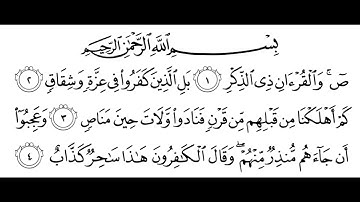 بِسْمِ ٱللَّهِ ٱلرَّحْمَٰنِ ٱلرَّحِيمِ
صٓ ۚ وَٱلْقُرْءَانِ ذِى ٱلذِّكْرِ ١ بَلِ ٱلَّذِينَ كَفَرُوا۟ فِى عِزَّةٍ وَشِقَاقٍ ٢
كَمْ أَهْلَكْنَا مِن قَبْلِهِم مِّن قَرْنٍ فَنَادَوا۟ وَّلَاتَ حِينَ مَنَاصٍ ٣ وَعَجِبُوٓا۟
أَن جَآءَهُم مُّنذِرٌ مِّنْهُمْ ۖ وَقَالَ ٱلْكَٰفِرُونَ هَٰذَا سَٰحِرٌ كَذَّابٌ ٤